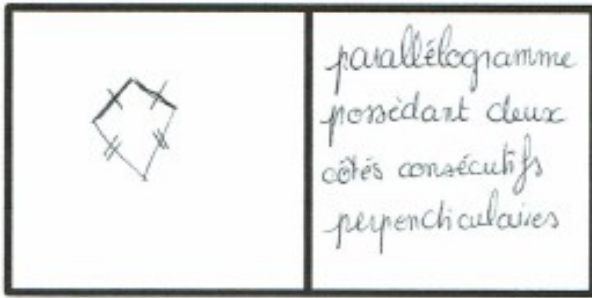 parallélogramme
possédant deux
côtés consécutifs
perpendiculaires